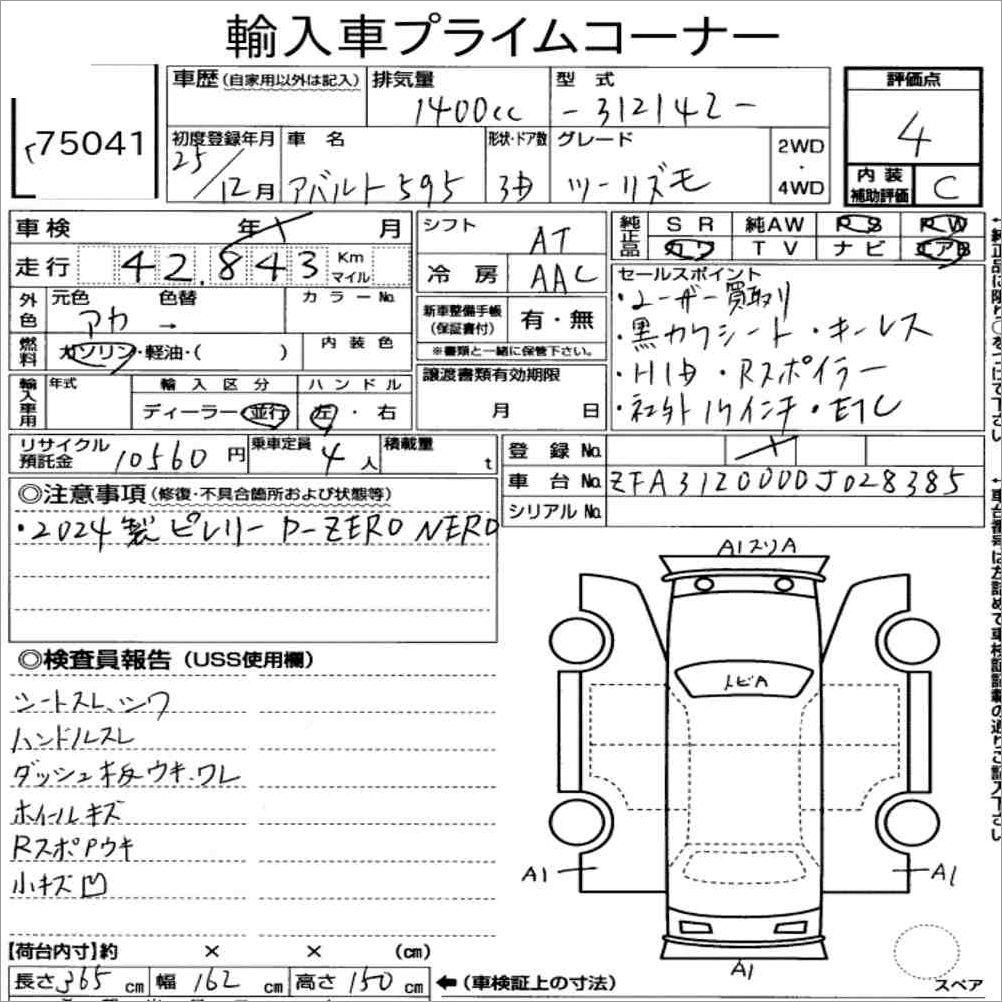 輸入車プライムコーナー
75041
車歴 (自家用以外は記入)
排気量
1400cc
型式
-312142-
評価点
4
初度登録年月
25/12月
車名
アバルト595
形状・ドア数
3D
グレード
ツーリズモ
2WD
・
4WD
内装
補助評価
C
車検 年 月
走行 42,843 Km
マイル
シフト
AT
冷房 AAC
純正品
SR 純AW RS RW
カワ TV ナビ エアB
セールスポイント
・ユーザー買取り
・黒カワシート・キーレス
・HID・Rスポイラー
・社外17インチ・ETC
外色
元色 色替
アカ →
カラーNo.
燃料
ガソリン・軽油・( )
内装色
新車整備手帳
(保証書付)
有・無
※書類と一緒に保管下さい。
輸入車用
年式
輸入区分
ディーラー・並行
ハンドル
左・右
譲渡書類有効期限
月 日
リサイクル
預託金 10560 円
乗車定員 4 人
積載量 t
登録No.
車台No. ZFA3120000J028385
シリアルNo.
◎注意事項 (修復・不具合箇所および状態等)
・2024製 ピレリー P-ZERO NERO
◎検査員報告 (USS使用欄)
シートスレ、シワ
ハンドルスレ
ダッシュ板ウキ.ワレ
ホイールキズ
RスポPウキ
小キズ凹
A1スリA
トビA
A1
A1
A1
スペア
【荷台内寸】約 × × (cm)
長さ 365 cm 幅 162 cm 高さ 150 cm
←(車検証上の寸法)